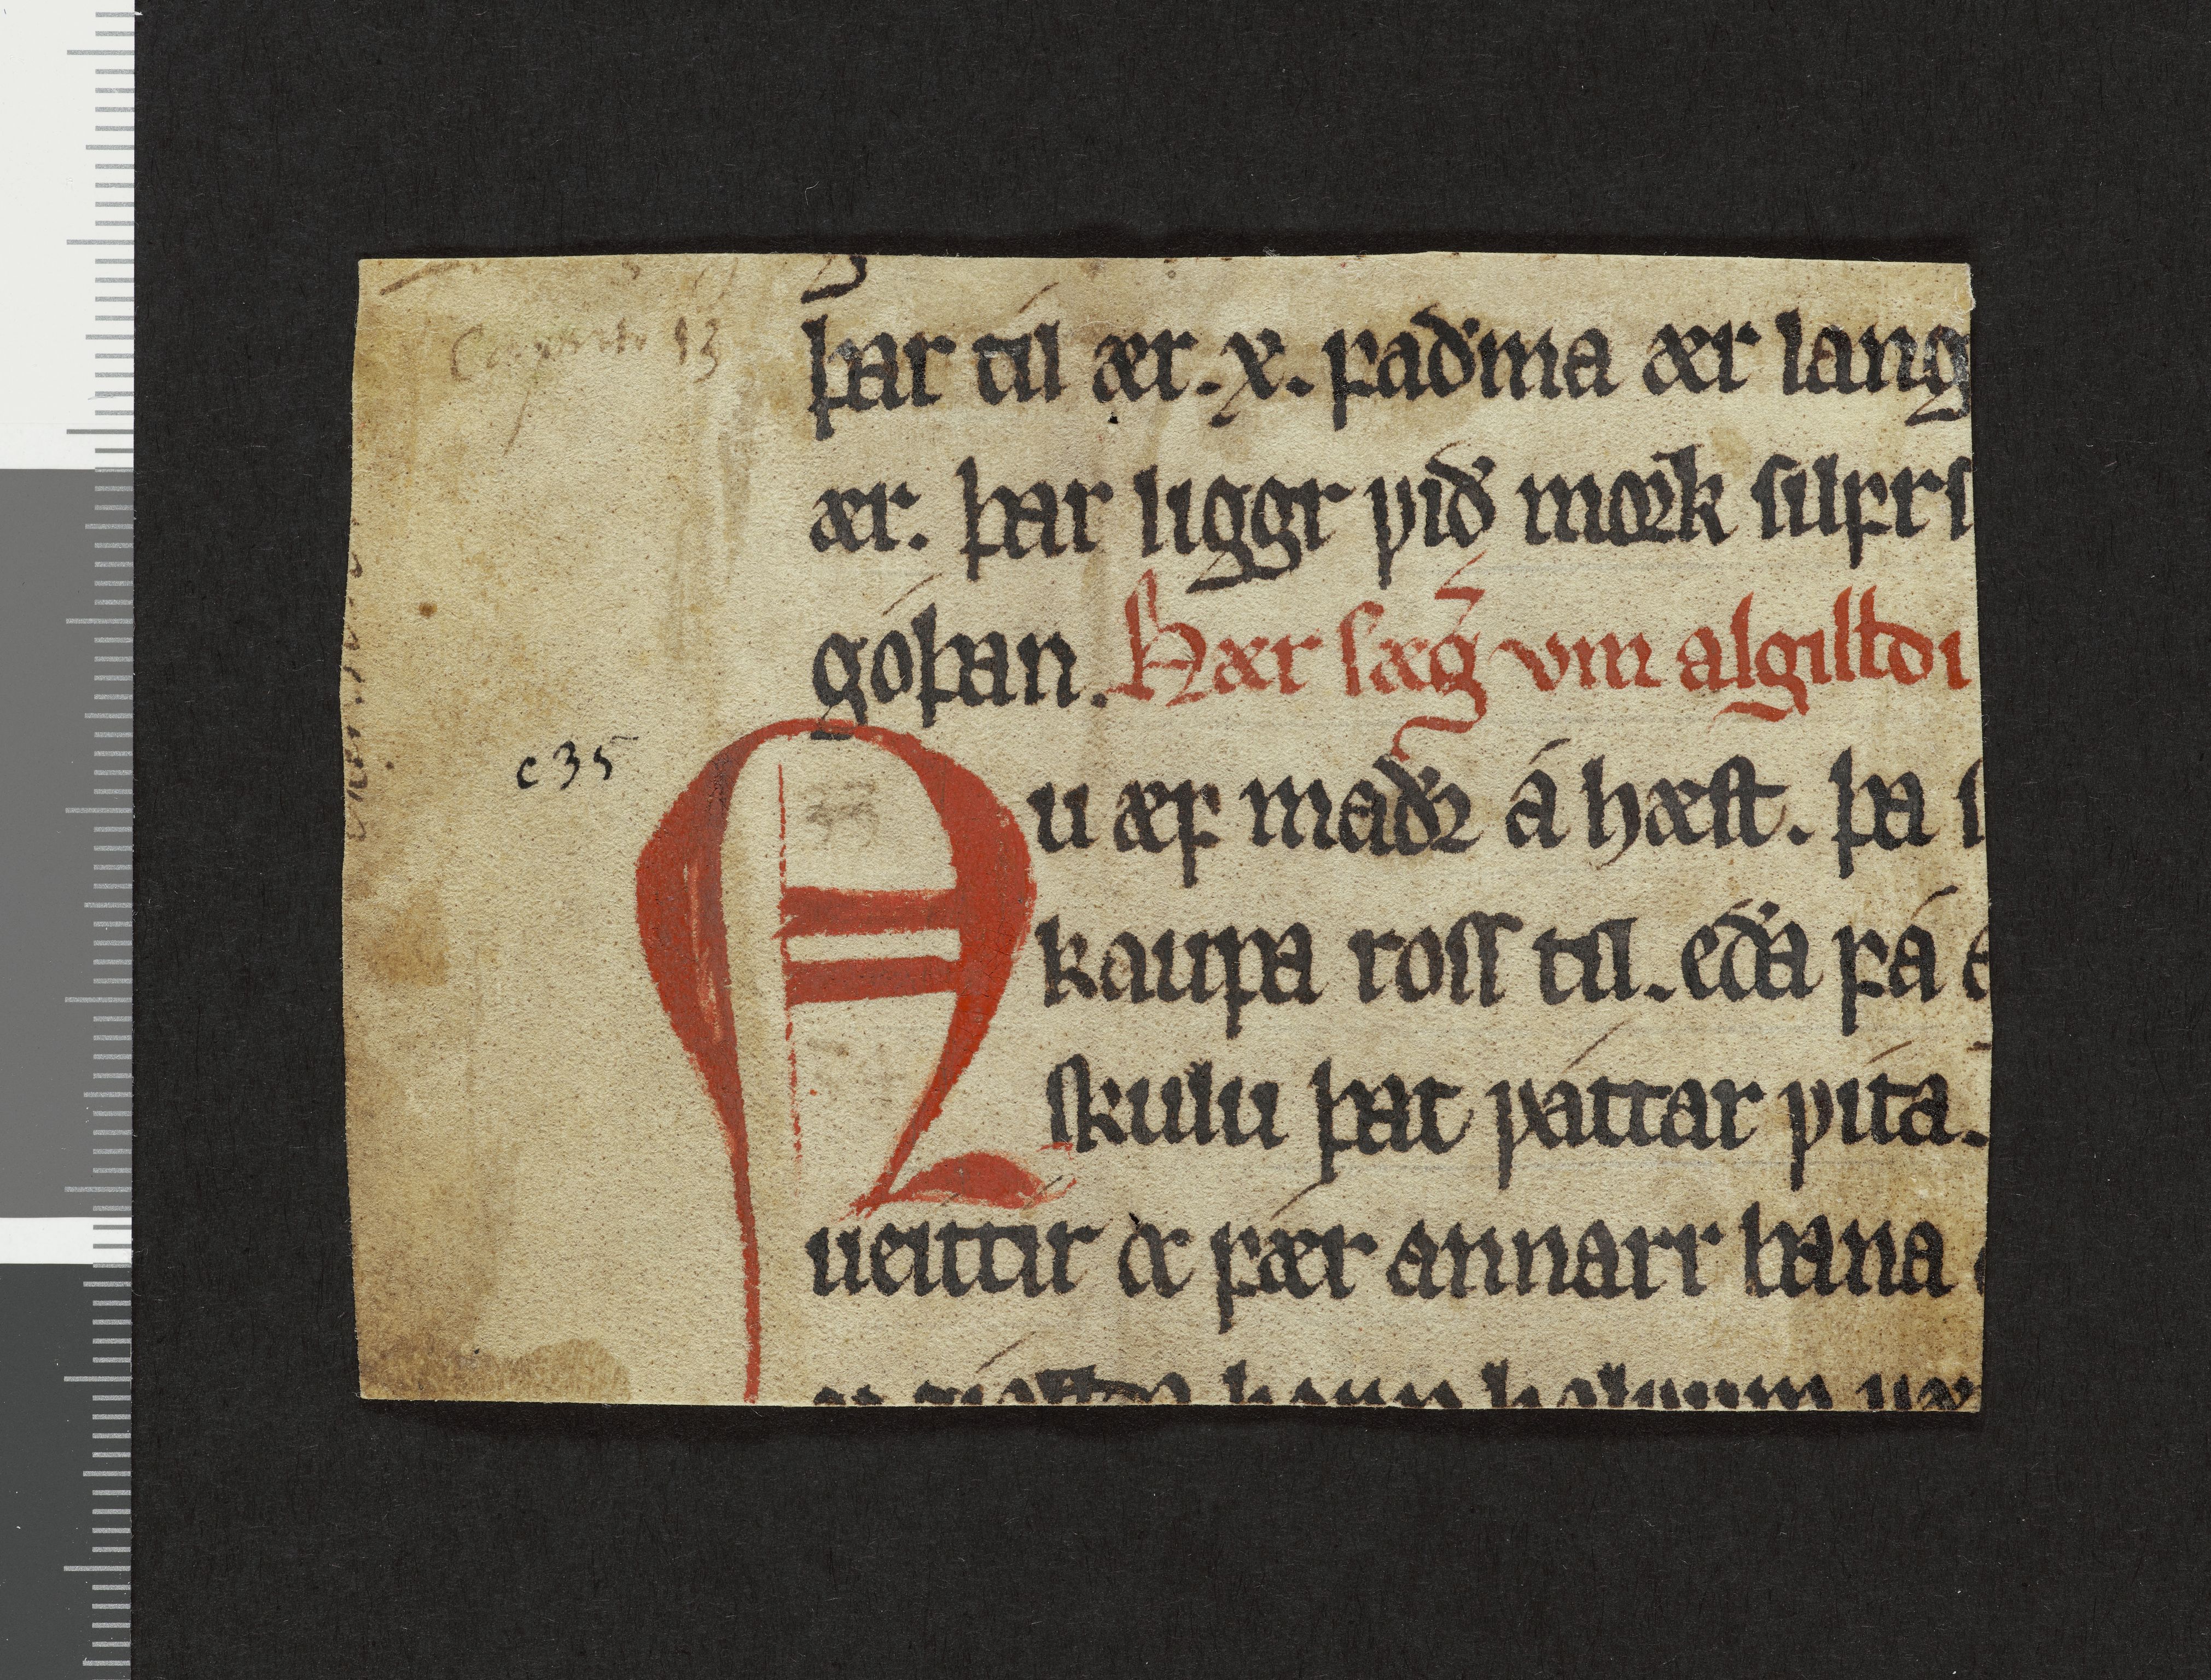 þar til ær. x. faðma ær lang
ær. þar liggr við mork silfrs
góþan. Hær sæg vm algilldi
c 35
Nu æf maðr á hæst. þa s
kaupa ross til. eða fá
skulu þat váttar víta.
ueittir oc fær annarr hana